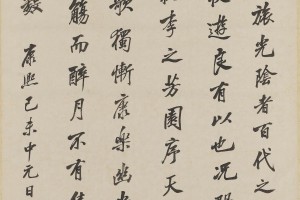 旅光陰者百代之
遊良有以也況陽
桃李之芳園序天
歌獨慚康樂幽
觴而醉月不有佳
數 康熙己未中元日